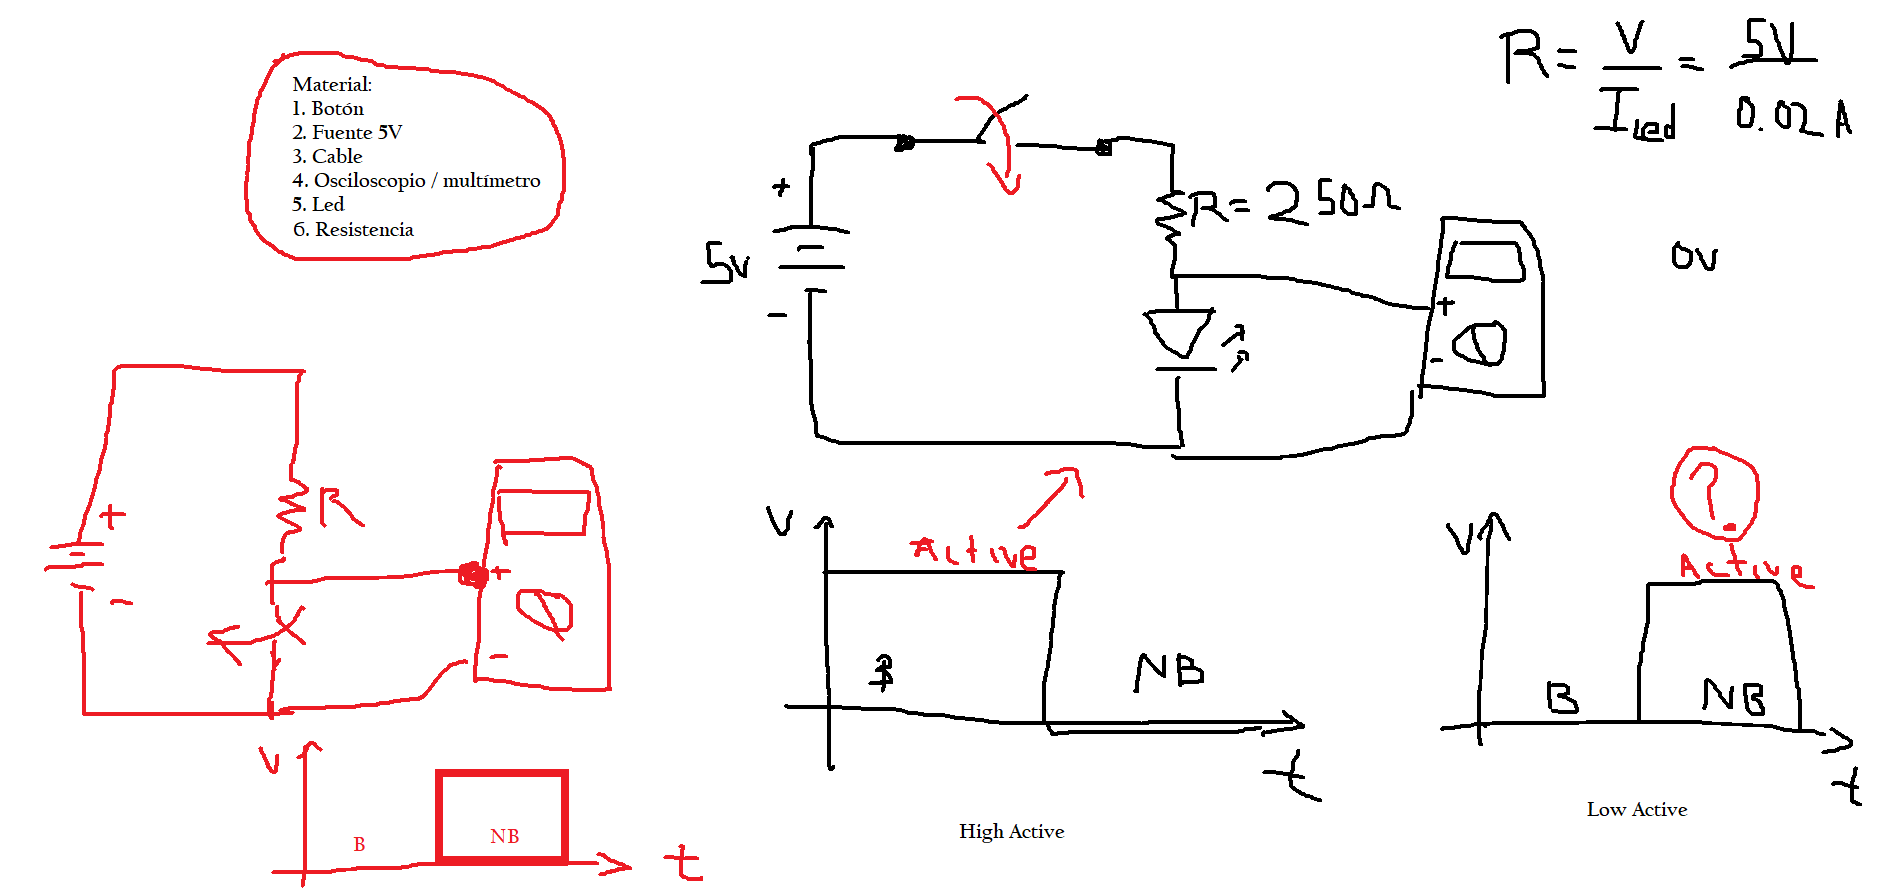 Material:
1. Botón
2. Fuente 5V
3. Cable
4. Osciloscopio / multímetro
5. Led
6. Resistencia
R = V / I Led = 5V / 0.02 A
+
5V
-
R = 250Ω
+
-
0V
+
-
R
+
-
V
B
NB
t
V
Active
B
NB
t
High Active
?
V
Active
B
NB
t
Low Active